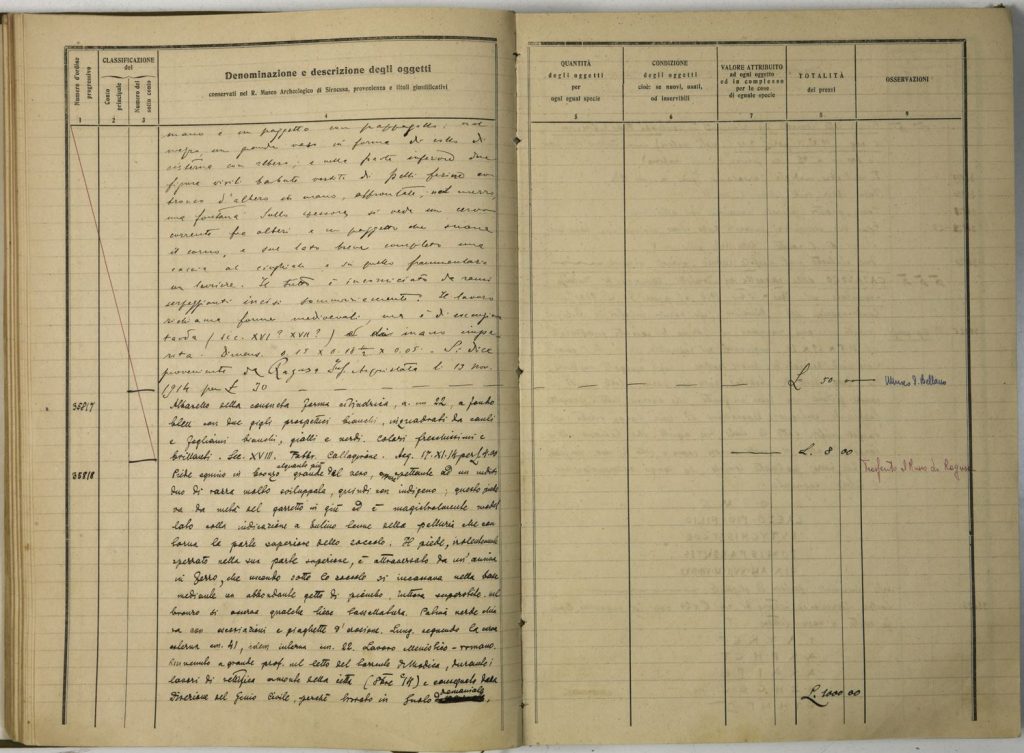 Numero d'ordine progressivo
CLASSIFICAZIONE del
Conto principale
Numero del sotto conto
Denominazione e descrizione degli oggetti
conservati nel R. Museo Archeologico di Siracusa, provenienza e titoli giustificativi
QUANTITÀ
degli oggetti
per
ogni egual specie
CONDIZIONE
degli oggetti
cioè: se nuovi, usati,
od inservibili
VALORE ATTRIBUITO
ad ogni oggetto
ed in complesso
per le cose
di eguale specie
TOTALITÀ
dei prezzi
OSSERVAZIONI
1 2 3 4 5 6 7 8 9
mano e un paggetto con pappagallo; nel
mezzo un grande vaso in forma di collo di
cisterna con albero; e nella parte inferiore due
figure virili barbute vestite di pelli ferine con
tronco d'albero in mano, affrontate, nel mezzo
una fontana. Sullo spessore si vede un cervo
corrente fra alberi e un paggetto che suona
il corno, e sul lato breve completo una
caccia al cinghiale e in quello frammentario
un levriere. Il tutto è incorniciato da rami
serpeggianti incisi sommariamente. Il lavoro
richiama forme medioevali, ma è di
tarda (sec. XVI? XVII?) di mano
Dimens. 0.15 x 0.18 ½ x 0.05. Si dice
proveniente da Ragusa Inf. Acquistata il 13 nov.
1914 per £ 50
£ 50
Museo P. Bellomo
35817
Albarello della consueta forma cilindrica, a. cm 22, a fondo
bleu con due gigli prospettici bianchi, inquadrati da cauli
e fogliami bianchi, gialli e verdi. Colori freschissimi e
brillanti. Sec. XVIII. Fabbr. Caltagirone. Acq. 17.XI.14 per £ 8.00
£. 8 00
35818
Piede equino in bronzo alquanto più grande del vero, spettante ad un indivi
duo di razza molto sviluppata, quindi non indigeno; questo piede
va da metà del garretto in giù ed è magistralmente model
lato colla indicazione a bulino lenne della pelluria che con
torna la parte superiore dello zoccolo. Il piede, violentemente
spezzato nella sua parte superiore, è attraversato da un'anima
in ferro, che uscendo sotto lo zoccolo si incassava nella base
mediante un abbondante getto di piombo tuttora superstite. nel
bronzo si osserva qualche lieve tassellatura. Patina verde chia
ra con escoriazioni e piaghette d'erosione. Lung. seguendo la curva
esterna cm. 41, idem interna cm. 22. Lavoro ellenistico-romano.
Rinvenuto a grande prof. nel letto del torrente di Modica, durante i
lavori di rettifica a monte della città (8bre 1914) e consegnato dalla
Direzione del Genio Civile, perché trovato in suolo demaniale.
Trasferito al Museo di Ragusa
£. 1000.00